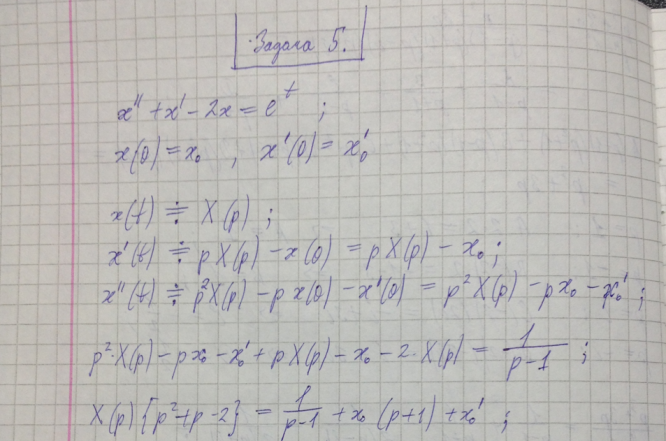 Задача 5.
x'' + x' - 2x = e^t ;
x(0) = x₀ , x'(0) = x₀'
x(t) ≑ X(p) ;
x'(t) ≑ pX(p) - x(0) = pX(p) - x₀ ;
x''(t) ≑ p²X(p) - px(0) - x'(0) = p²X(p) - px₀ - x₀' ;
p²·X(p) - px₀ - x₀' + pX(p) - x₀ - 2·X(p) = 1/(p-1) ;
X(p){p²+p-2} = 1/(p-1) + x₀(p+1) + x₀' ;